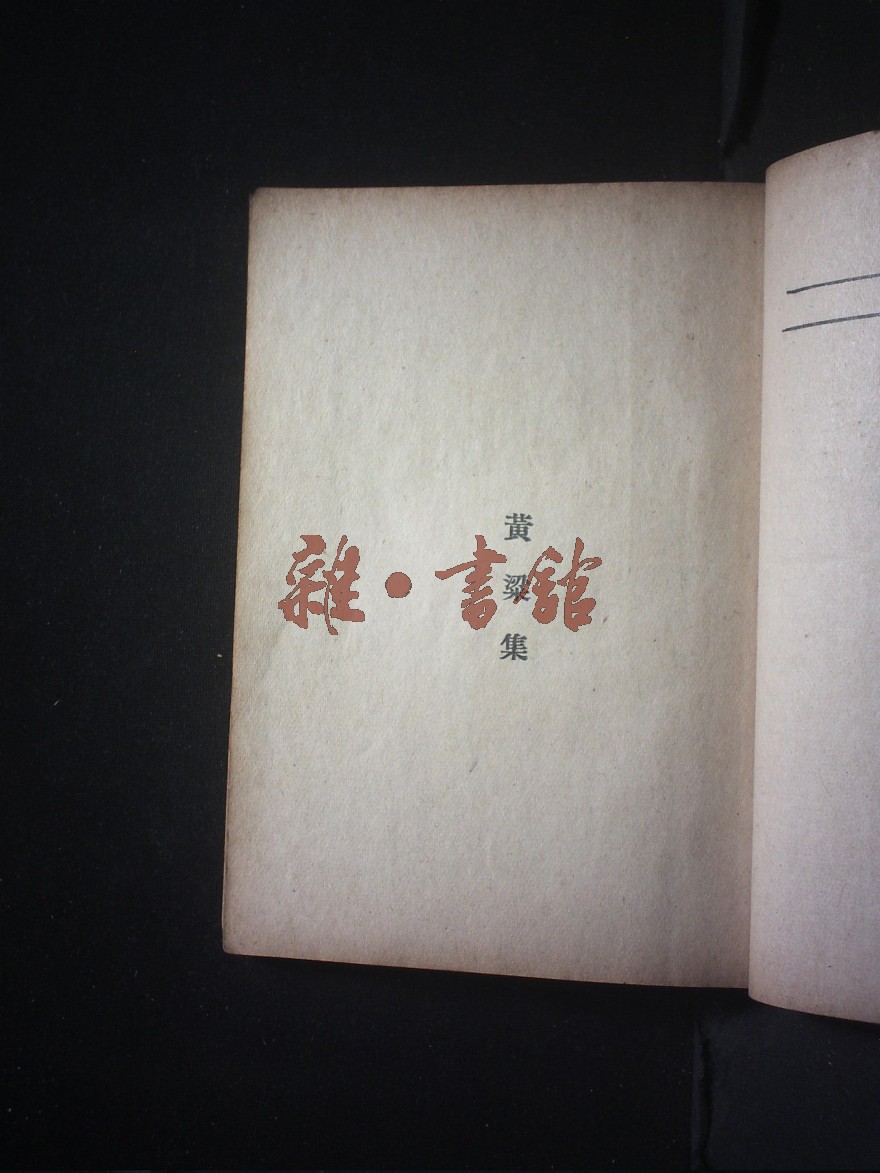 黃粱集
雜·書館